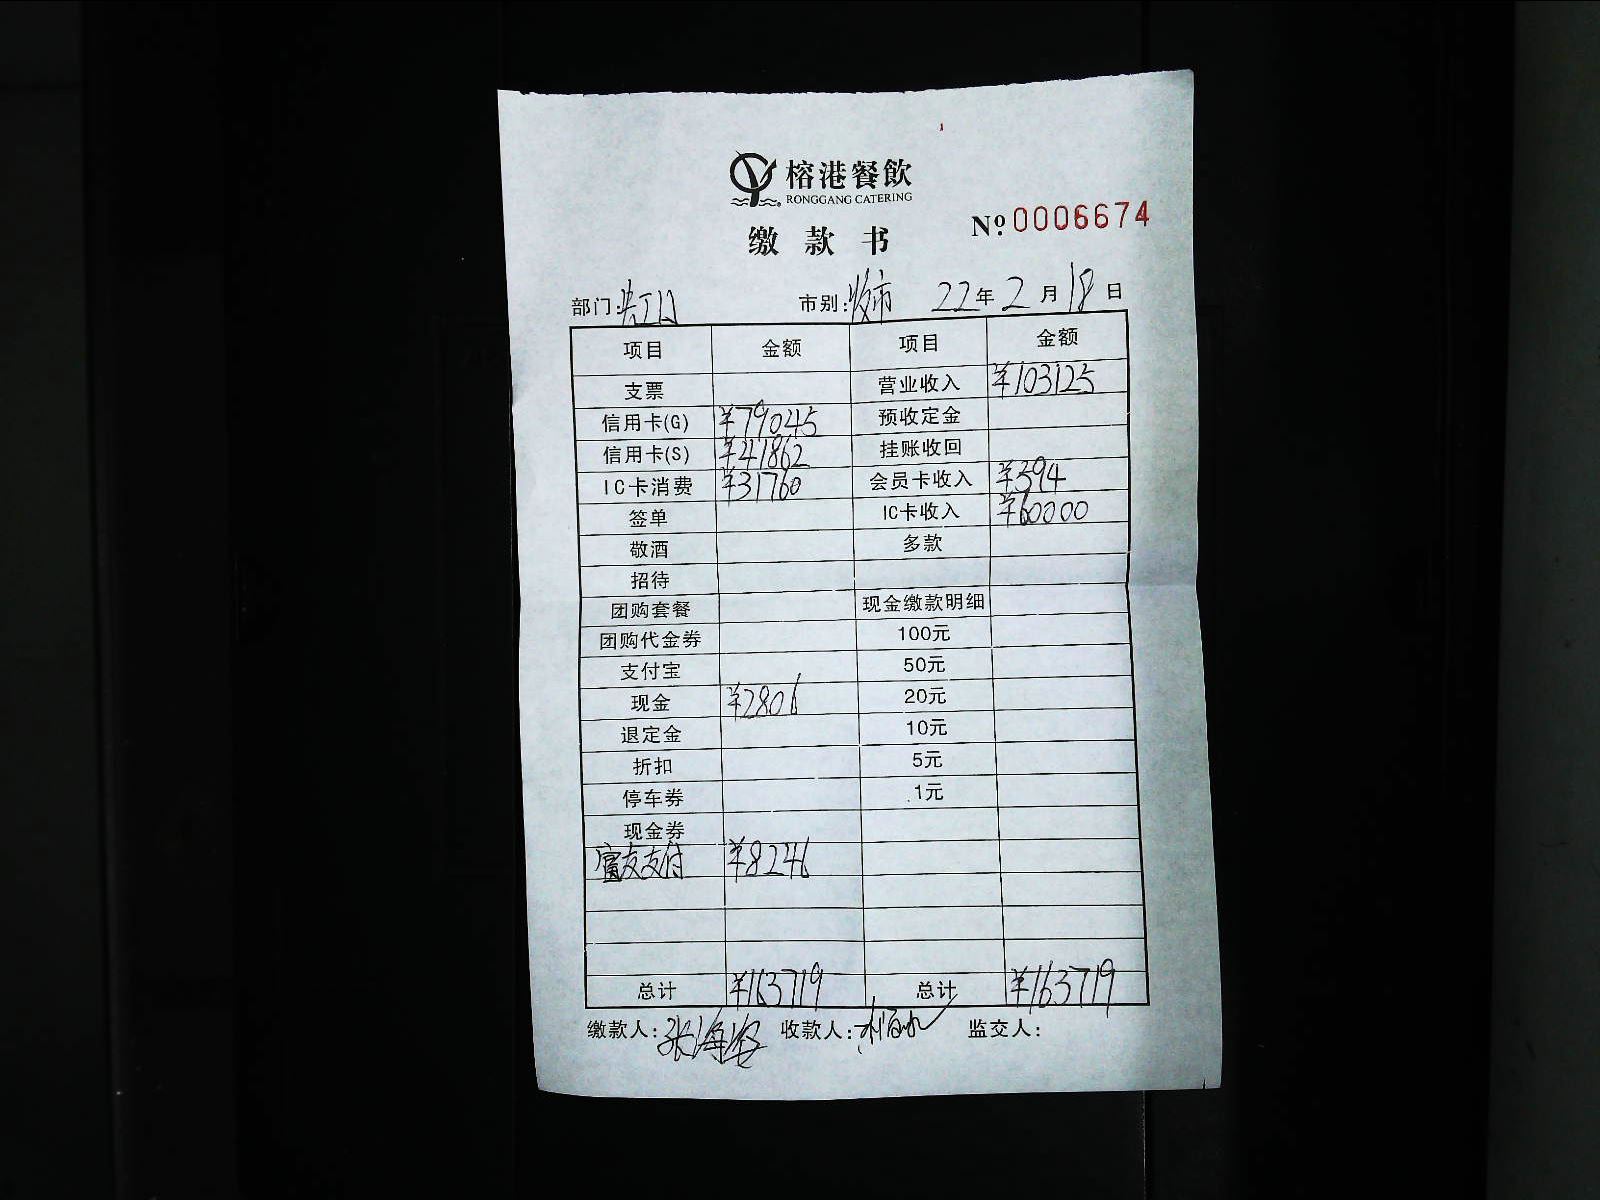 榕港餐飲
RONGGANG CATERING
缴款书
№ 0006674
部门: 市别: 夜市 22年2月18日
项目 金额 项目 金额
支票 营业收入 ¥103125
信用卡(G) ¥79045 预收定金
信用卡(S) ¥41862 挂账收回
IC卡消费 ¥31760 会员卡收入 ¥594
签单 IC卡收入 ¥60000
敬酒 多款
招待
团购套餐 现金缴款明细
团购代金券 100元
支付宝 50元
现金 ¥2806 20元
退定金 10元
折扣 5元
停车券 1元
现金券
富友支付 ¥8246
总计 ¥163719 总计 ¥163719
缴款人: 收款人: 监交人: